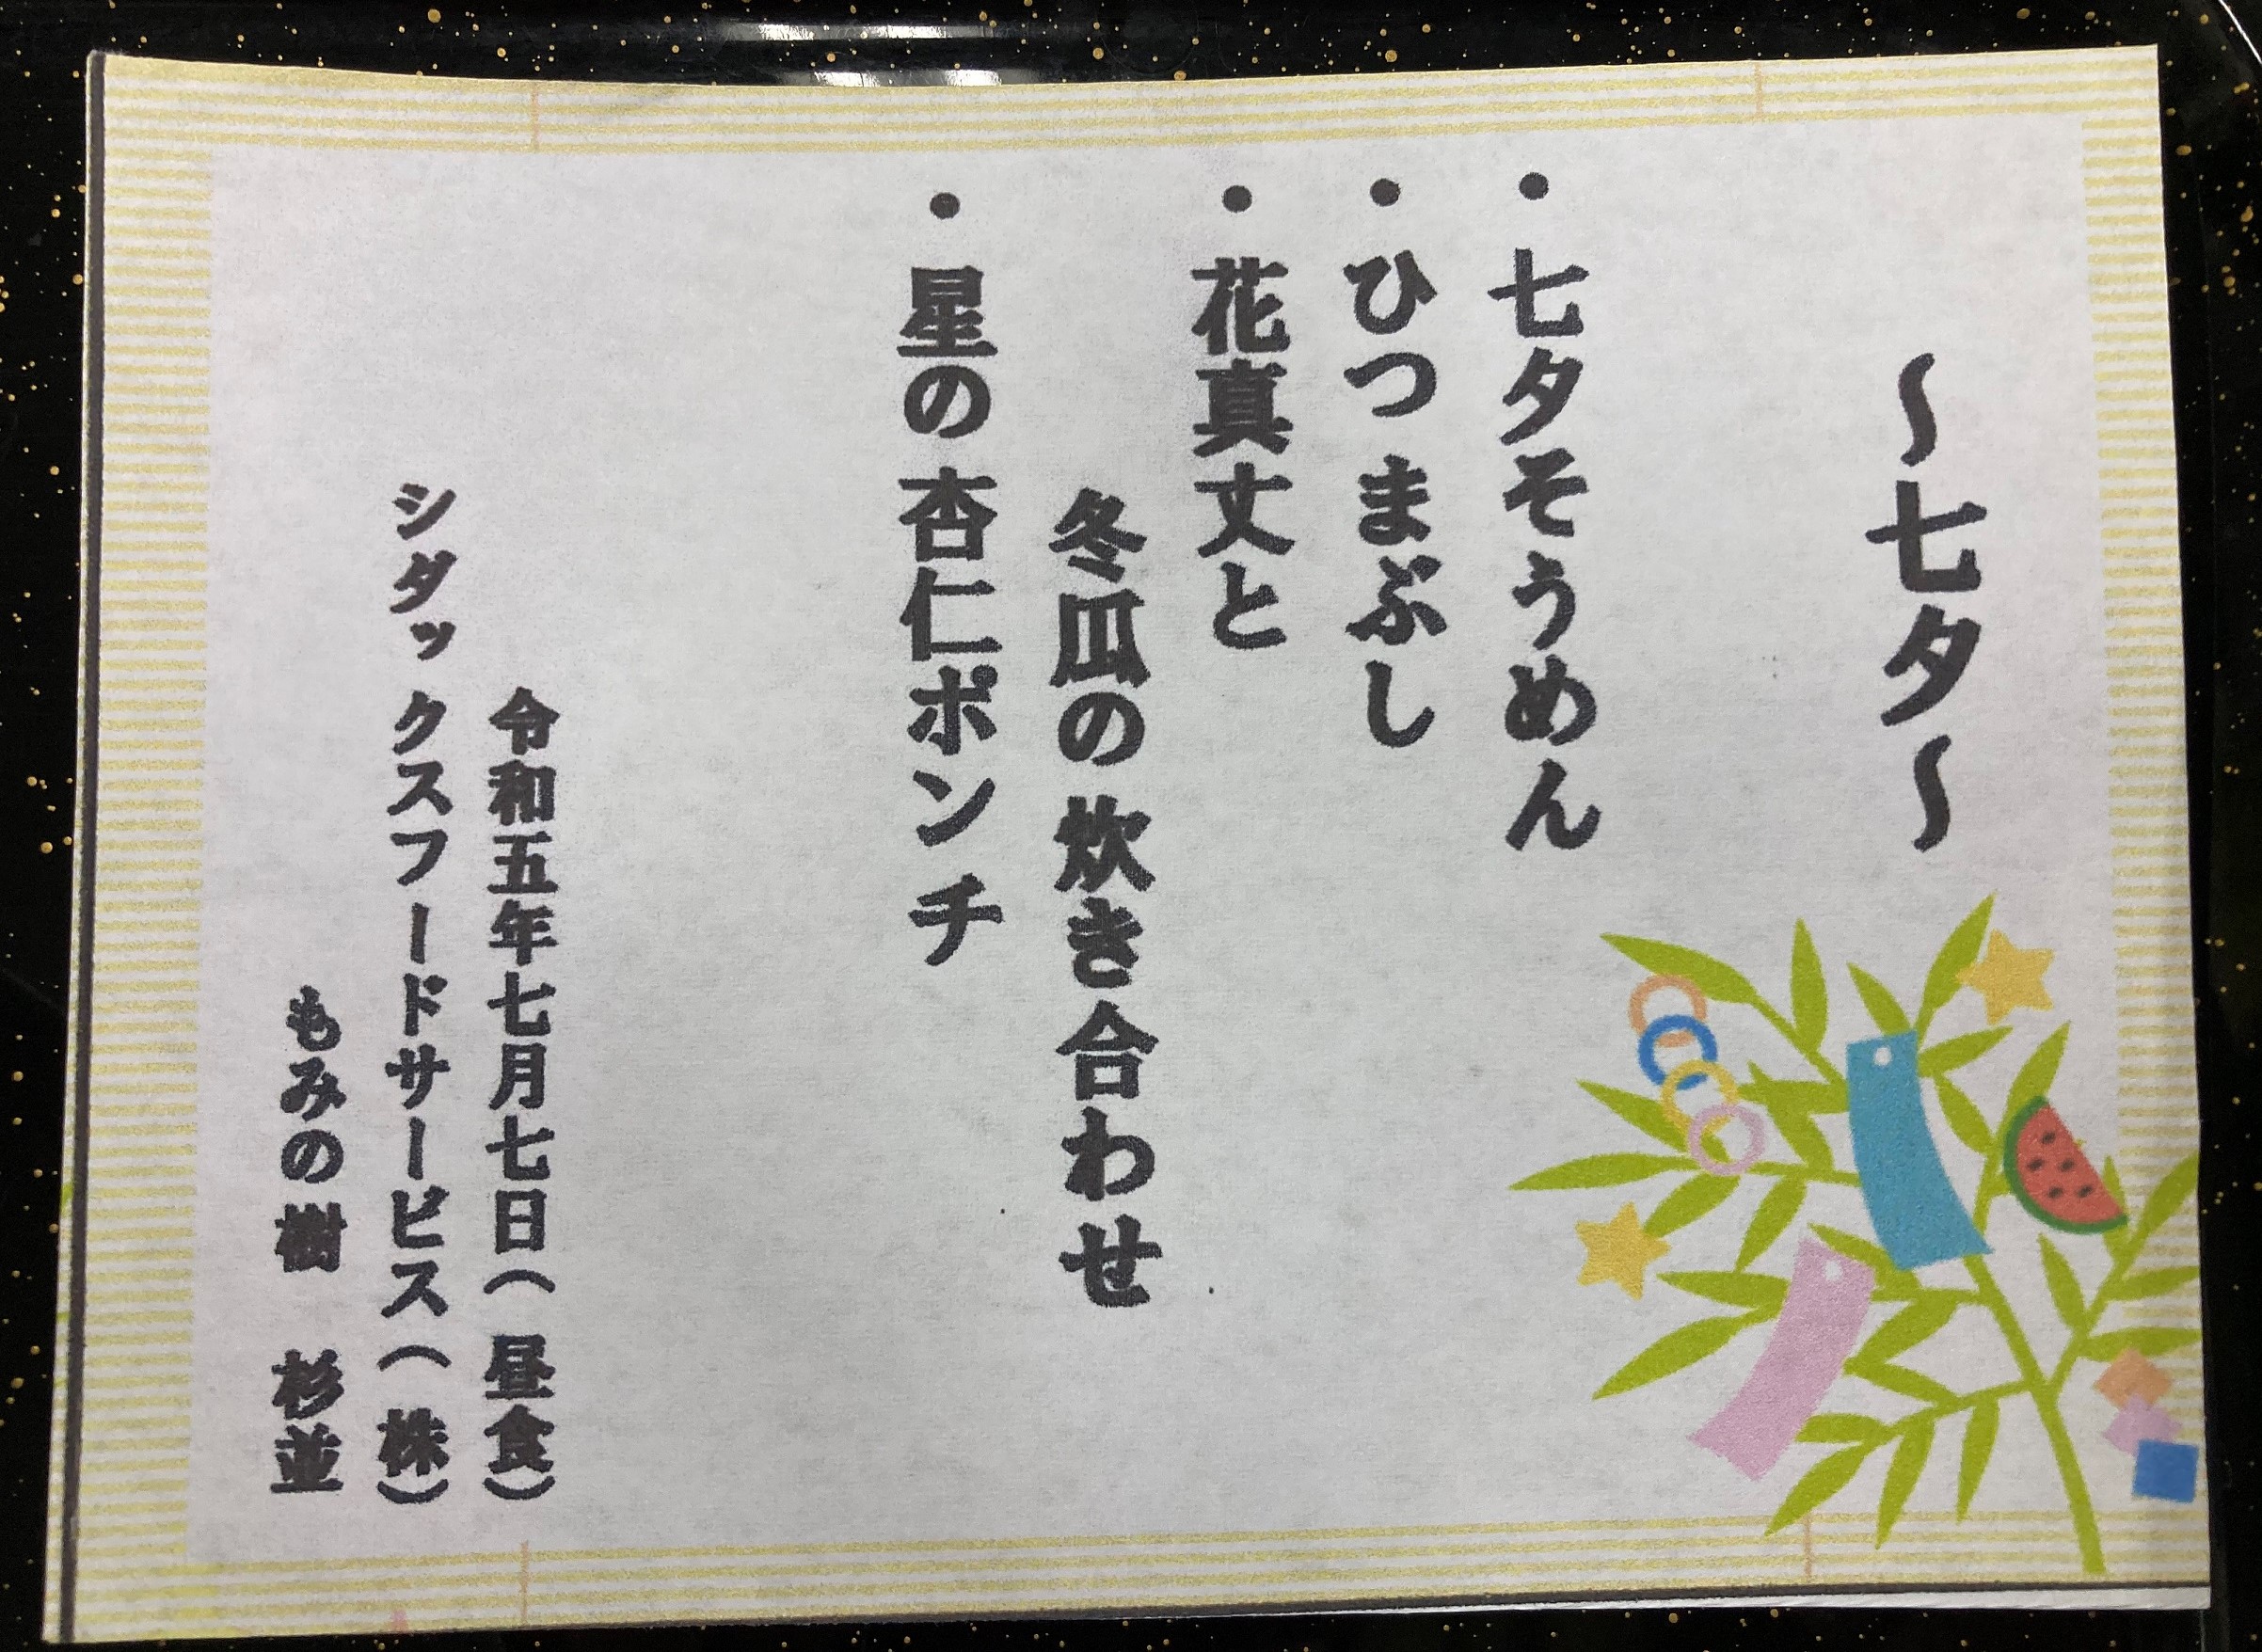 ～七夕～
・七夕そうめん
・ひつまぶし
・花真丈と
冬瓜の炊き合わせ
・星の杏仁ポンチ
令和五年七月七日（昼食）
シダックスフードサービス（株）
もみの樹　杉並